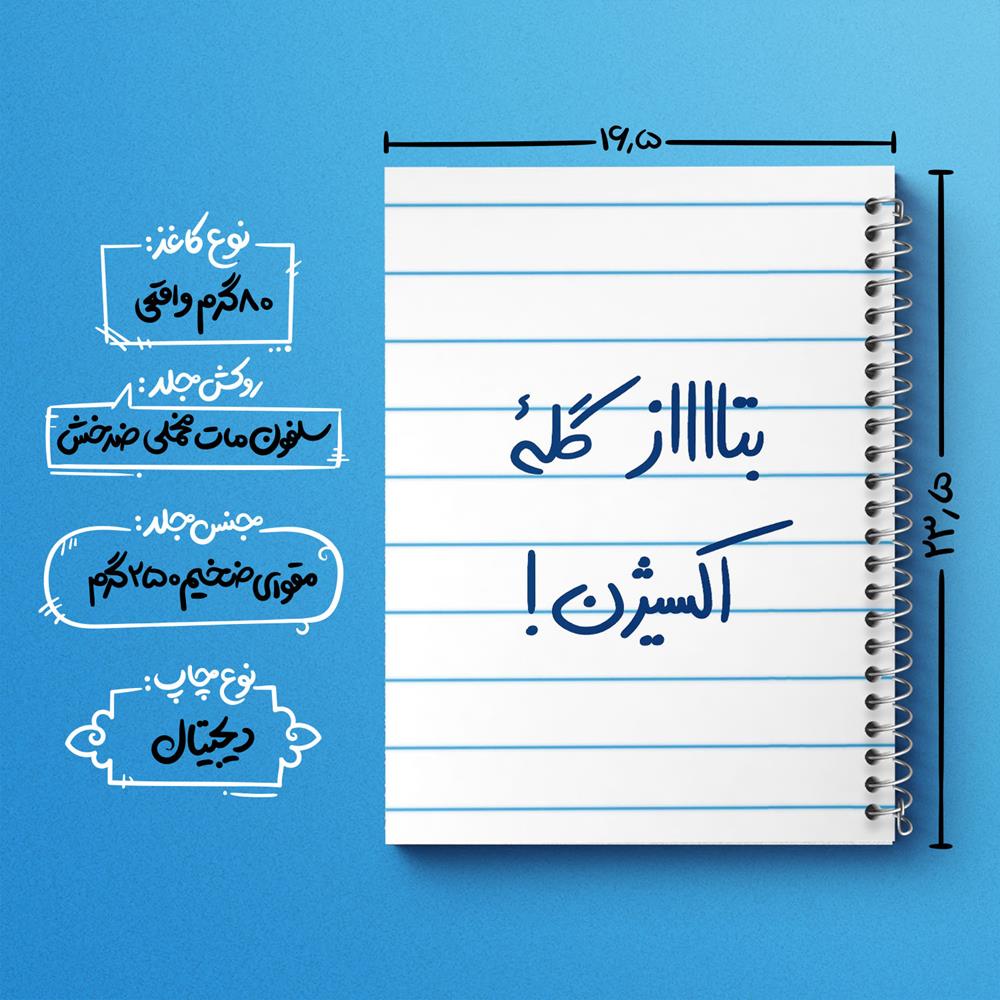 ۱۶٫۵
۲۳٫۵
بتااااز گلهٔ
اکسیژن !
نوع کاغذ:
۸۰گرم واقعی
روکش جلد:
سلفون مات مخملی ضدخش
جنس جلد:
مقوای ضخیم ۲۵۰گرم
نوع چاپ:
دیجیتال